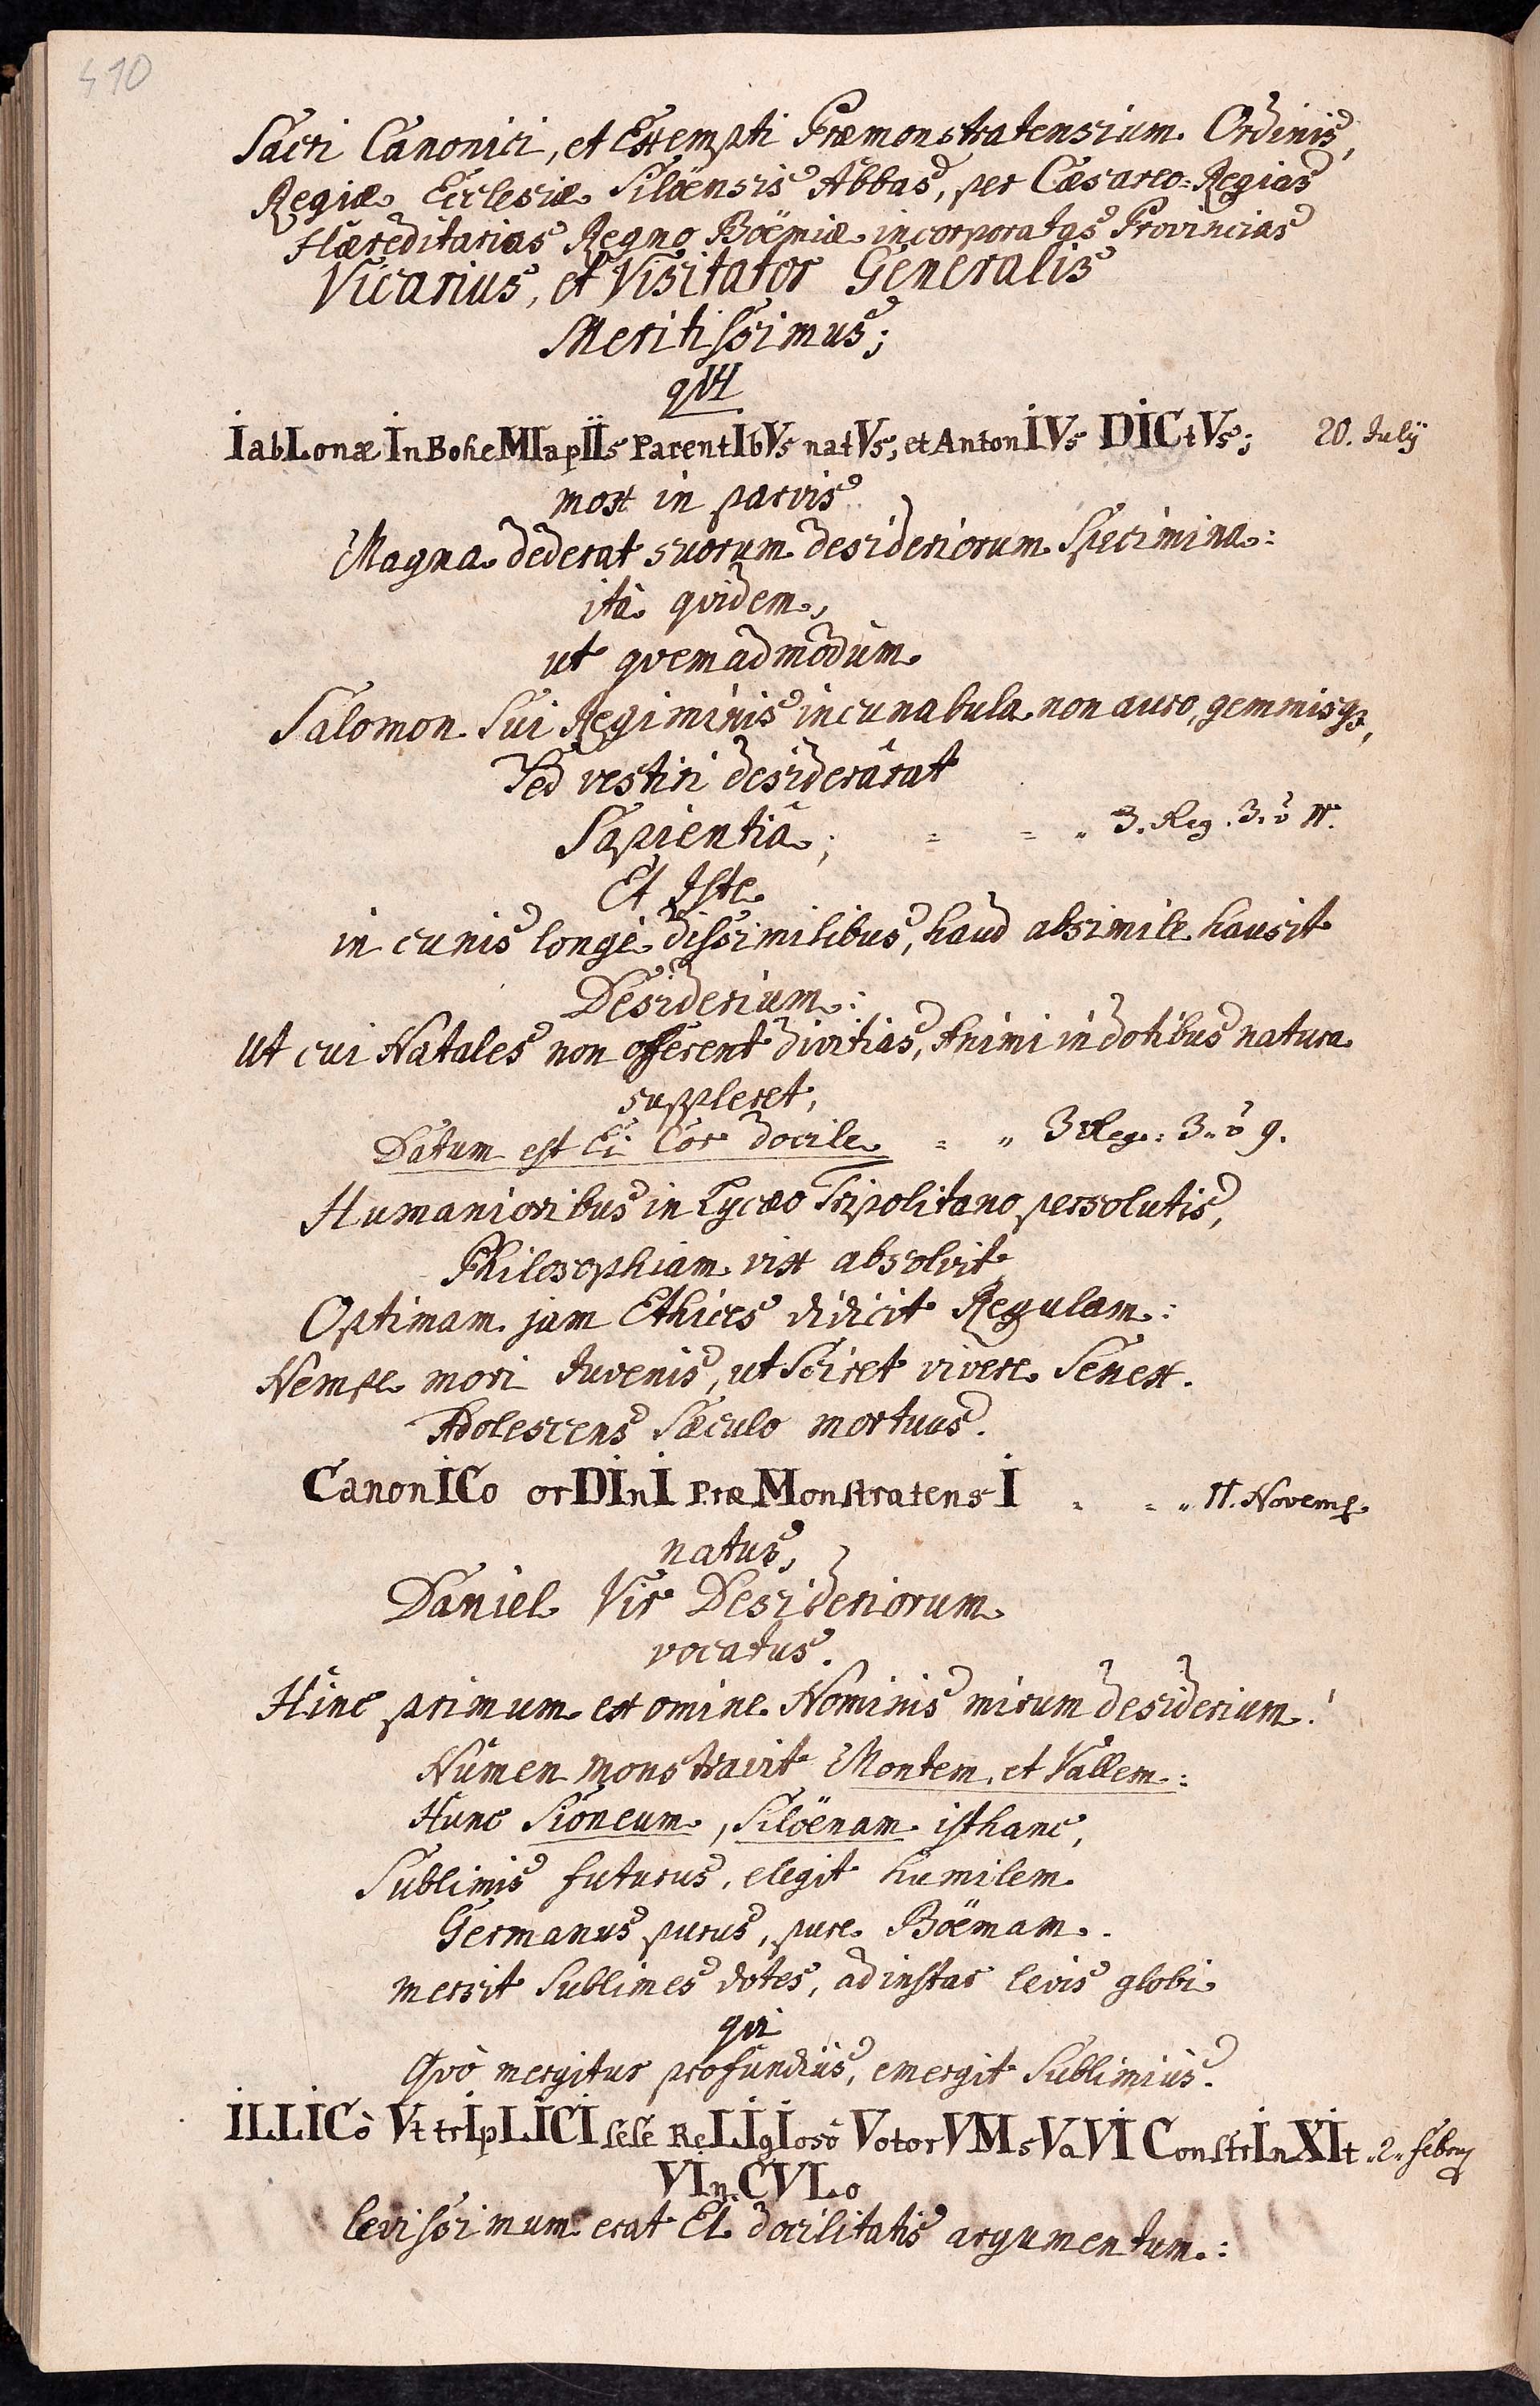 410
Sacri Canonici, et Exempti Præmonstratensium Ordinis,
Regiæ Ecclesiæ Siloënsis Abbas, per Cæsareo=Regias
Hæreditarias Regno Boëmiæ incorporatas Provincias
Vicarius, et Visitator Generalis
Meritissimus;
qVI
IabLonæ In BoheMIa pIIs ParentIbVs natVs, et AntonIVs DICtVs; 20. July
mox in parvis
Magna dederat suorum desideriorum Specimina:
ità qvidem,
ut qvemadmodùm
Salomon Sui Regiminis incunabula non auro, gemmisqꝫ,
Sed vestiri desiderârat
Sapientiâ; = = „ 3. Reg. 3. v̀ 11.
Et Iste
in cunis longè dissimilibus, haud absimile hausit
Desiderium:
Ut cui Natales non offerent divitias, Animi in dotibus natura
suppleret,
Datum est Ei Cor docile = „ 3 Reg: 3. v̀ 9.
Humanioribus in Lycæo Tripolitano persolutis,
Philosophiam vix absolvit
Optimam jam Ethices didicit Regulam:
Nempe mori Iuvenis, ut Sciret vivere Senex.
Adolescens Sæculo mortuus.
CanonICo orDInI PræMonstratensI = = „ 11. Novemb.
natus,
Daniel Vir Desideriorum
vocatus.
Hinc primum ex omine Nominis mirum desiderium!
Numen monstravit Montem, et Vallem:
Hunc Sioneum, Siloënam isthanc,
Sublimis futurus, elegit humilem
Germanus purus, pure Boëmam.
mersit Sublimes dotes, ad instar levis globi
qvi
Qvò mergitur profundiùs, emergit Sublimiùs.
ILLICò Vt trIpLICI sese ReLIgIosô VotorVM sVaVI ConstrInXIt „2„ febry
VInCVLo
levissimum erat Ei docilitatis argumentum: